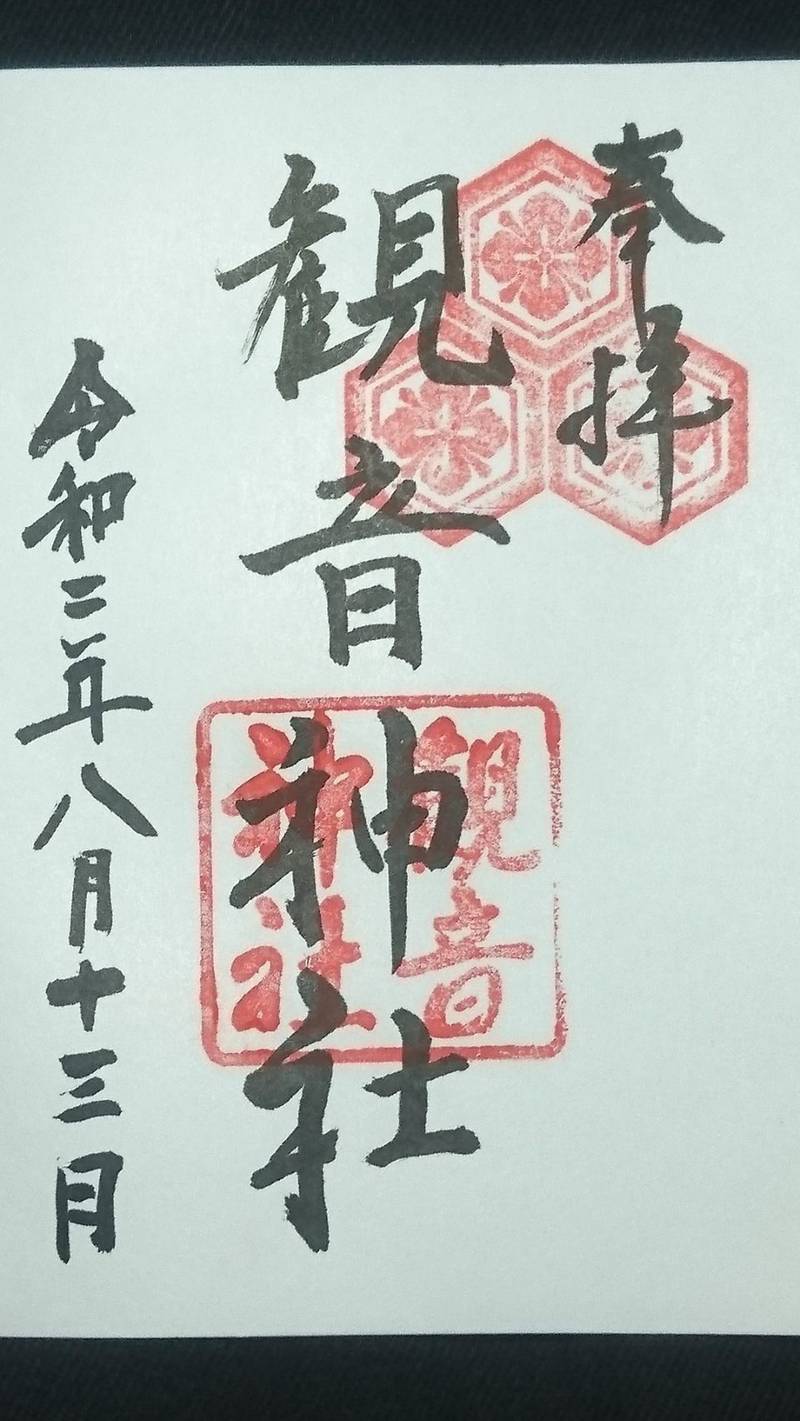 奉拝
観音神社
観音
神社
令和二年八月十三日